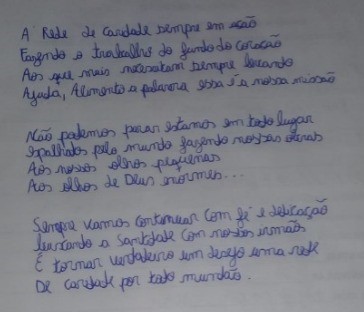 A Rede de Caridade sempre em ação
Fazendo o trabalho do fundo do coração
Aos que mais necessitam sempre levando
Ajuda, Alimento a palavra essa é a nossa missão
Não podemos parar estamos em todo lugar
espalhados pelo mundo fazendo nossas obras
Aos nossos olhos pequenas
Aos olhos de Deus enormes...
Sempre vamos continuar com fé e dedicação
buscando a Santidade com nossos irmãos
É tornar verdadeiro um desejo uma rede
De caridade por todo mundão.